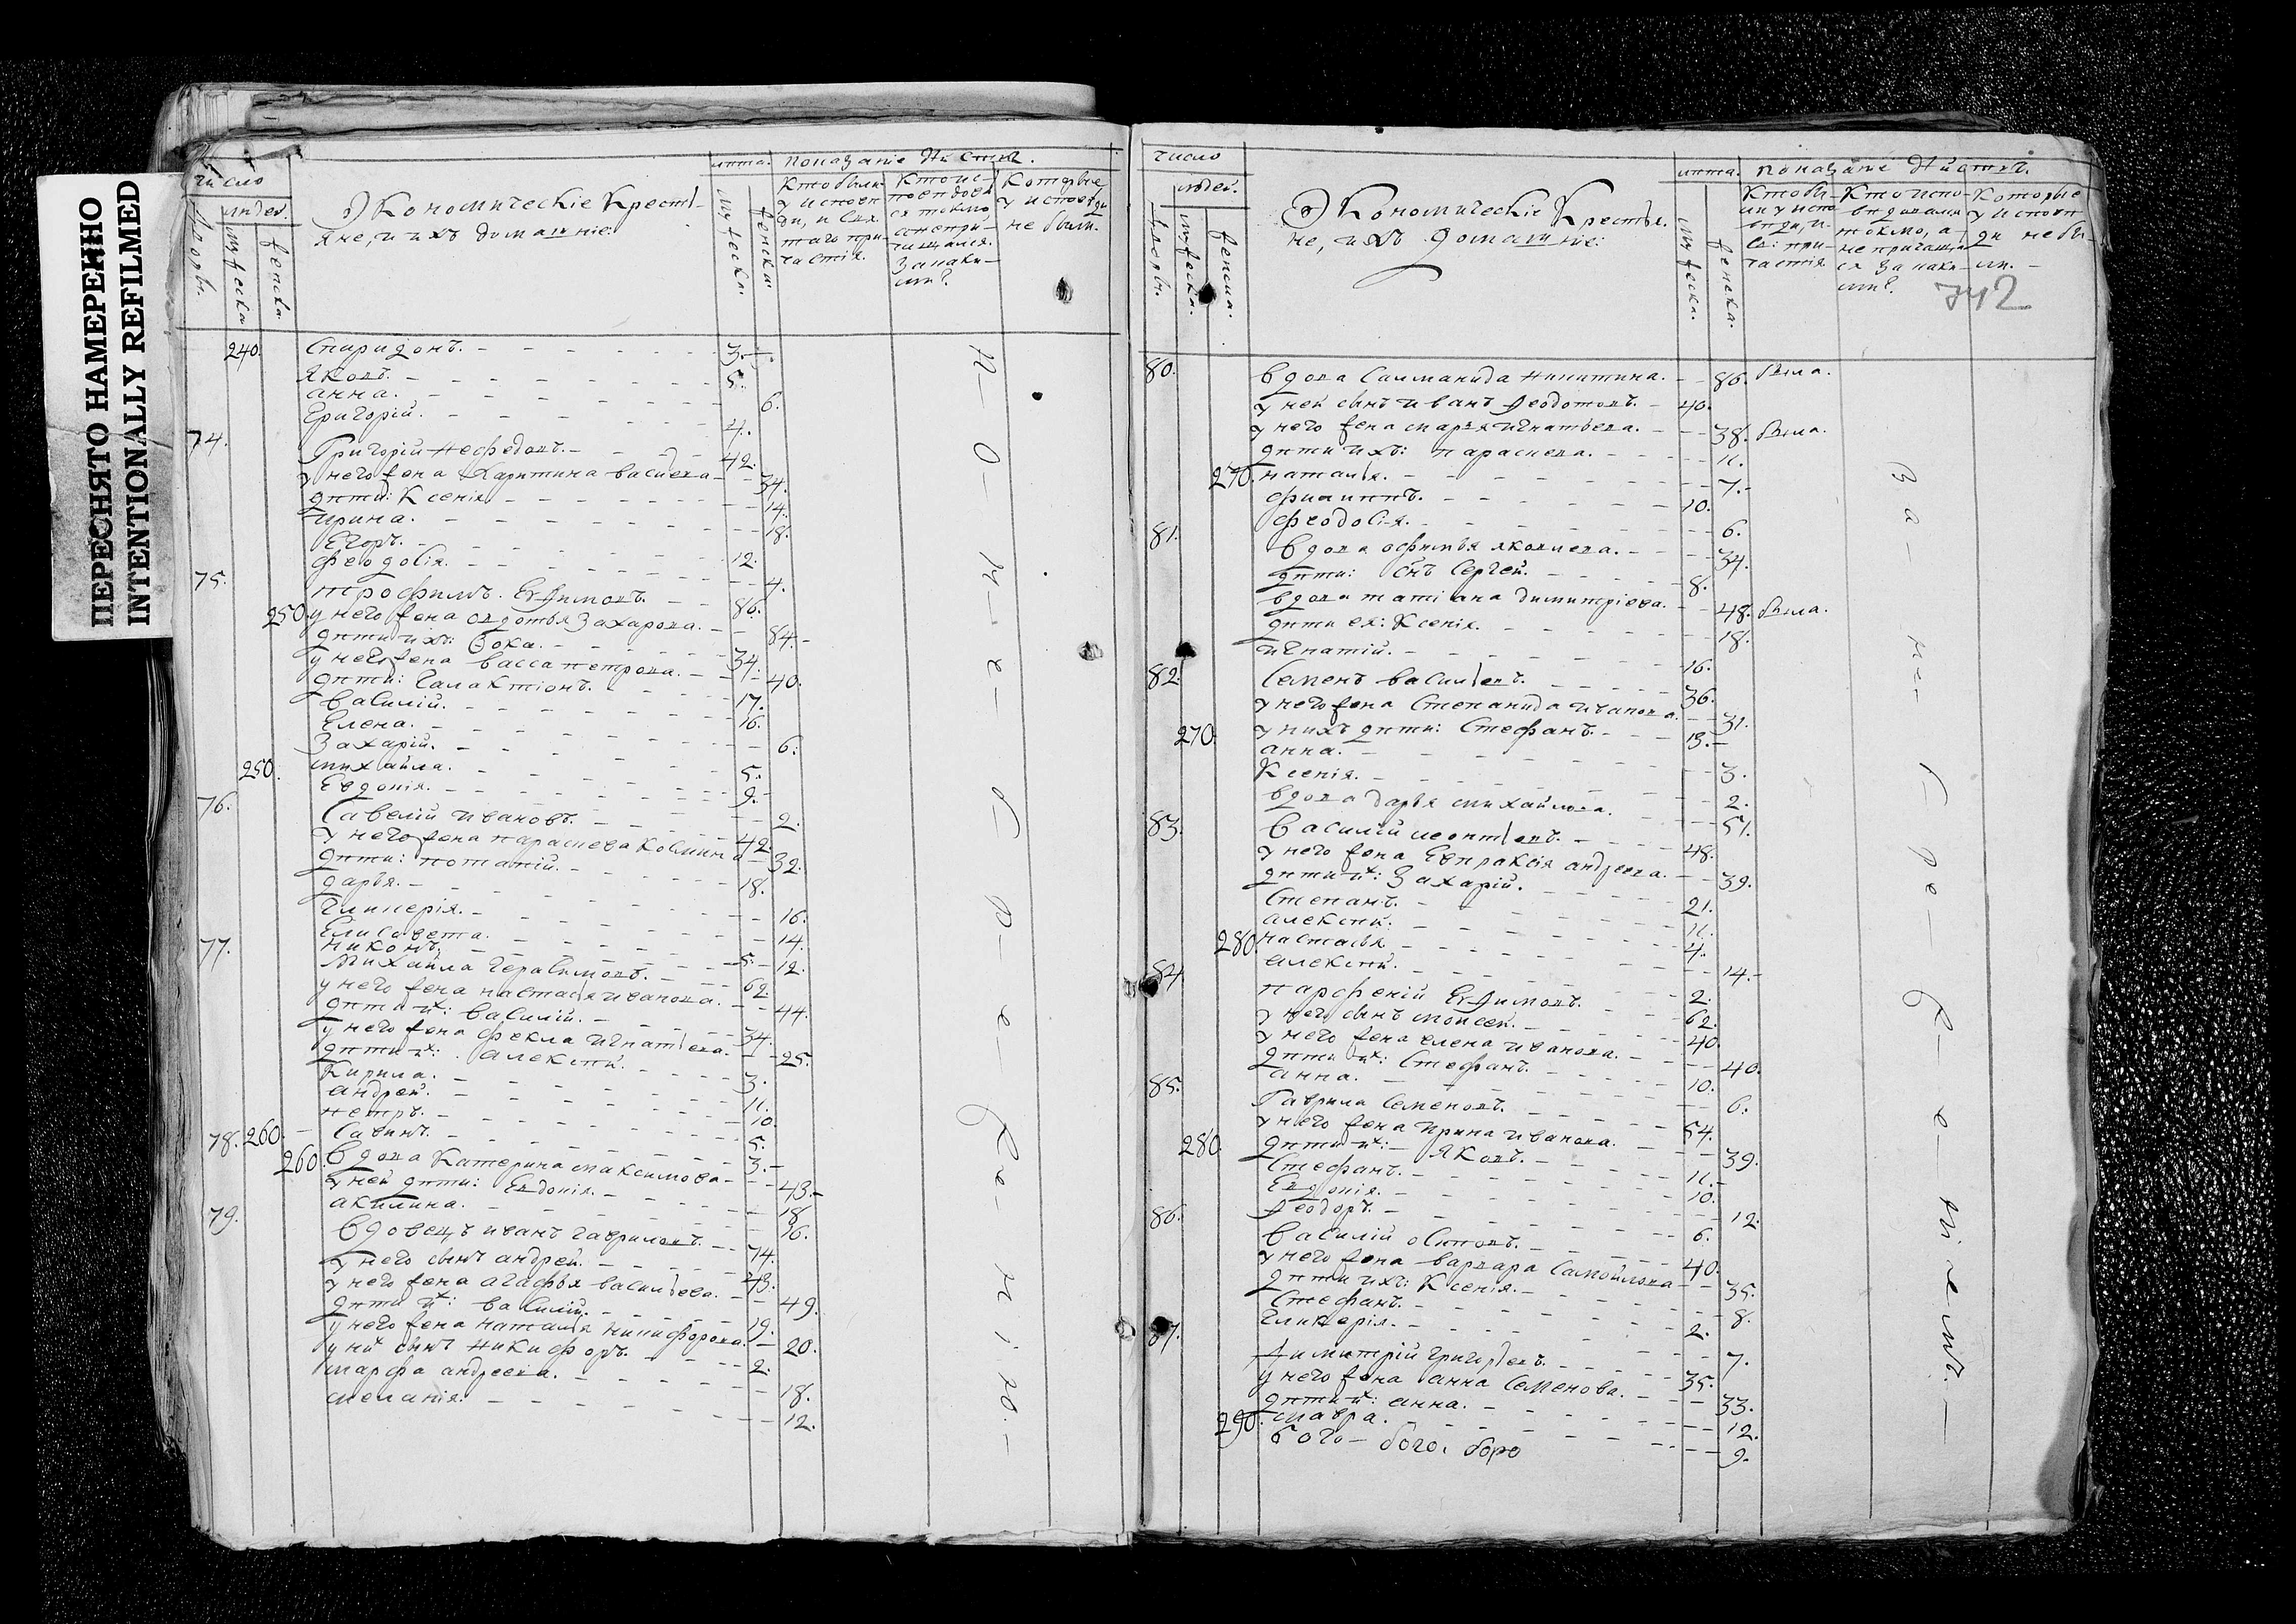 ПЕРЕСНЯТО НАМЕРЕННО
INTENTIONALLY REFILMED
число
людей.
Дворы.
мужеска
женска.
Экономическіе Крестья-
яне, и ихъ домашніе.
лѣта.
мужескл.
женски.
показаніе дѣйств.
Кто были
у исповѣ
ди, и свя.
таго при-
частія.
Кто ис-
поведова
ся токмо
а не при-
чащался.
За каки-
ми?
Которые
у исповѣди
не были.
240. Спиридонъ. 3.
Яковъ. 5.
анна. 6.
Григорій. 4.
74. Григорій Нефедовъ. 42.
у него жена Харитина васильева 34.
дѣти: Ксенія 14.
ирина. 18.
Егоръ. 12.
Феодосія. 4.
75. трофимъ Евдимовъ 86.
250. у него жена авдотья Захарова. 84.
дѣти ихъ: Ѳока. 34.
у него жена васса петрова. 40.
дѣти: Галактіонъ. 17.
василій. 16.
Елена. 6.
Захарій. 5.
250. михайла. 9.
Евдокія. 2.
76. Савелій ивановъ. 42.
у него жена параскева Космина 32.
дѣти: потапій. 18.
дарья. 16.
Гликерія. 14.
Елисавета. 12.
никонъ. 5.
77. Михайла Герасимовъ. 62.
у него жена настасья иванова. 44.
дѣти их: василій. 34.
у него жена Фекла игнатьева. 25.
дѣти их: алексѣй. 3.
Кирила. 11.
андрей. 10.
петръ. 5.
260. Савинъ. 3.
78. 260. вдова Катерина максимова 43.
у ней дѣти: Евдокія. 18.
акилина. 16.
79. вдовецъ иванъ гавриловъ. 74.
у него сынъ андрей. 43.
у него жена агафья васильева. 49.
дѣти их: василій. 19.
у него жена наталья никифорова. 20.
у них сынъ Никифоръ. 2.
марфа андреева. 18.
меланія. 12.
число
людей.
Дворы.
мужеска.
женска.
Экономическіе Крестья.
не, и ихъ домашніе:
лѣта.
мужеска.
женска.
показаніе дѣйств.
Кто бы-
ли у испо
вѣди, и
св: при-
частія
Кто испо-
вѣдовался
токмо, а
не причащал
ся за каки-
ми?
Которые
у исповѣ
ди не бы-
ли.
742
80. вдова Саломанида Никитина. 86. была.
у ней сынъ иванъ Ѳеодотовъ. 40.
у него жена марья игнатьева. 38. была.
дѣти ихъ: параскева. 11.
270. наталья. 7.
филиппъ. 10.
феодосія. 6.
81. вдова офимья яковлева. 34.
дѣти: снъ Сергей. 8.
вдова татіана димитріева. 48. была.
дѣти ея: Ксенія. 18.
игнатій. 16.
82. Семенъ васильевъ. 36.
у него жена Степанида иванова. 31.
270. у нихъ дѣти: Стефанъ. 13.
анна. 3.
Ксенія. 2.
вдова дарья михайлова. 51.
83. василій леонтьевъ. 48.
у него жена Евпраксія андреева. 39.
дѣти их: Захарій. 21.
Степанъ. 11.
алексѣй. 4.
280. настасья 14.
алексѣй. 2.
84. парфеній Евдимовъ. 62.
у него сынъ моисей. 40.
у него жена елена иванова. 40.
дѣти их: Стефанъ. 10.
анна. 6.
85. Гаврила Семеновъ. 54.
у него жена ирина иванова. 39.
280. дѣти их: Яковъ. 11.
Стефанъ. 10.
Евдокія. 12.
Ѳеодоръ. 6.
86. василій осиповъ. 40.
у него жена варвара Самойлова 35.
дѣти ихъ: Ксенія. 8.
Стефанъ. 2.
Гликерія. 7.
87. Димитрій григорьевъ. 35.
у него жена анна Семенова. 33.
дѣти их: анна. 12.
290. мавра. 9.
бого- бого. боро